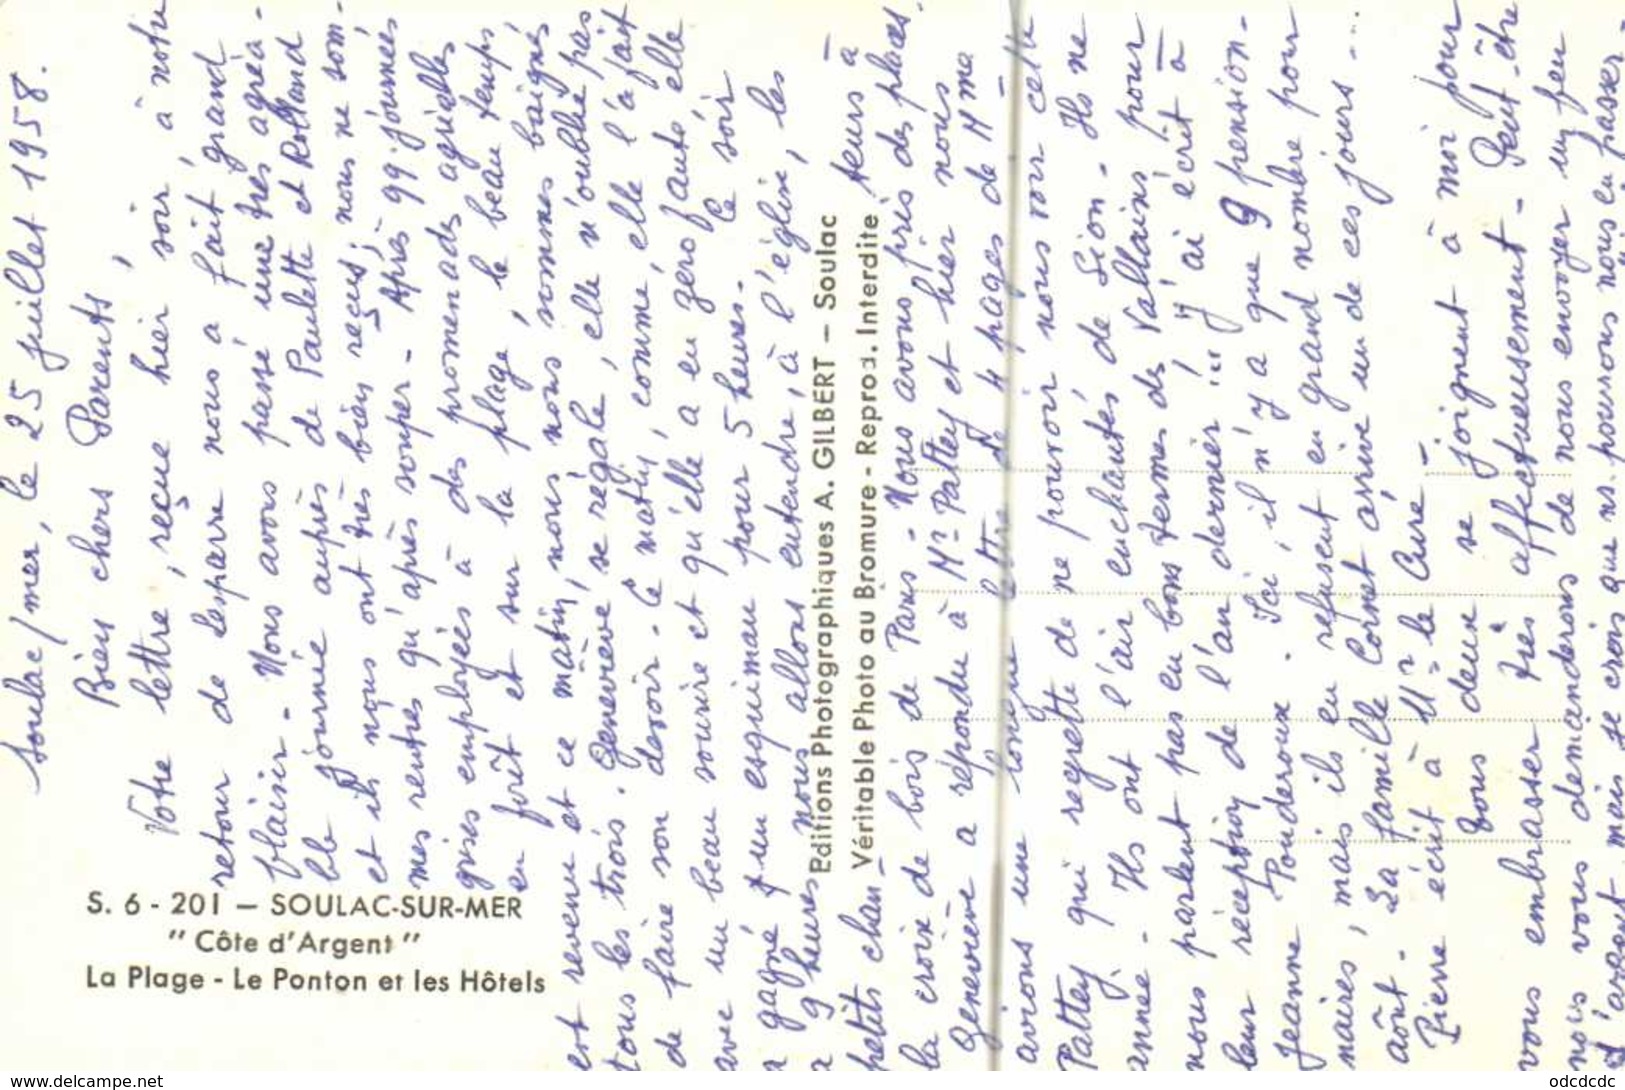 S. 6 - 201 — SOULAC-SUR-MER
" Côte d'Argent "
La Plage - Le Ponton et les Hôtels
Editions Photographiques A. GILBERT — Soulac
Véritable Photo au Bromure - Reprod. Interdite
Soulac/mer, le 25 juillet 1958.
Bien chers Parents,
Votre lettre, reçue hier soir, à notre
retour de Lesparre nous a fait grand
plaisir - Nous avons passé une très agréa-
ble journée auprès de Paulette et Rolland
et ils nous ont très bien reçus; nous ne som-
mes rentrés qu'après souper - Après 99 journées
grises employées à des promenades agréables
en forêt et sur la plage, le beau temps
est revenu et ce matin, nous nous sommes baignés
tous les trois. Geneviève se régale, elle n'oublie pas
de faire son devoir - Ce matin, comme, elle l'a fait
avec un beau sourire et qu'elle a eu zéro faute elle
a gagné un esquimau pour 5 heures. Ce soir
à 9 heures nous allons entendre, à l'église, les
petits chanteurs à
la croix de bois de Paris - Nous avons pris des places.
Geneviève a répondu à Mr Pattey et hier nous
avions une longue lettre de 4 pages de Mme
Pattey qui regrette de ne pouvoir nous voir cette
année. Ils ont l'air enchantés de Sion. Ils ne
nous parlent pas en bons termes des Vallaisns pour
leur réception de l'an dernier !!! J'ai écrit à
Jeanne Pouderoux. Ici, il n'y a que 9 pension-
naires, mais ils en refusent en grand nombre pour
août - La famille Cornet arrive un de ces jours ...
Pierre écrit à Mr le Curé -
Tous deux se joignent à moi pour
vous embrasser très affectueusement - Peut-être
nous vous demanderons de nous envoyer un peu
d'argent mais je crois que ns. pourrons nous en passer -
www.delcampe.net
odcdcdc